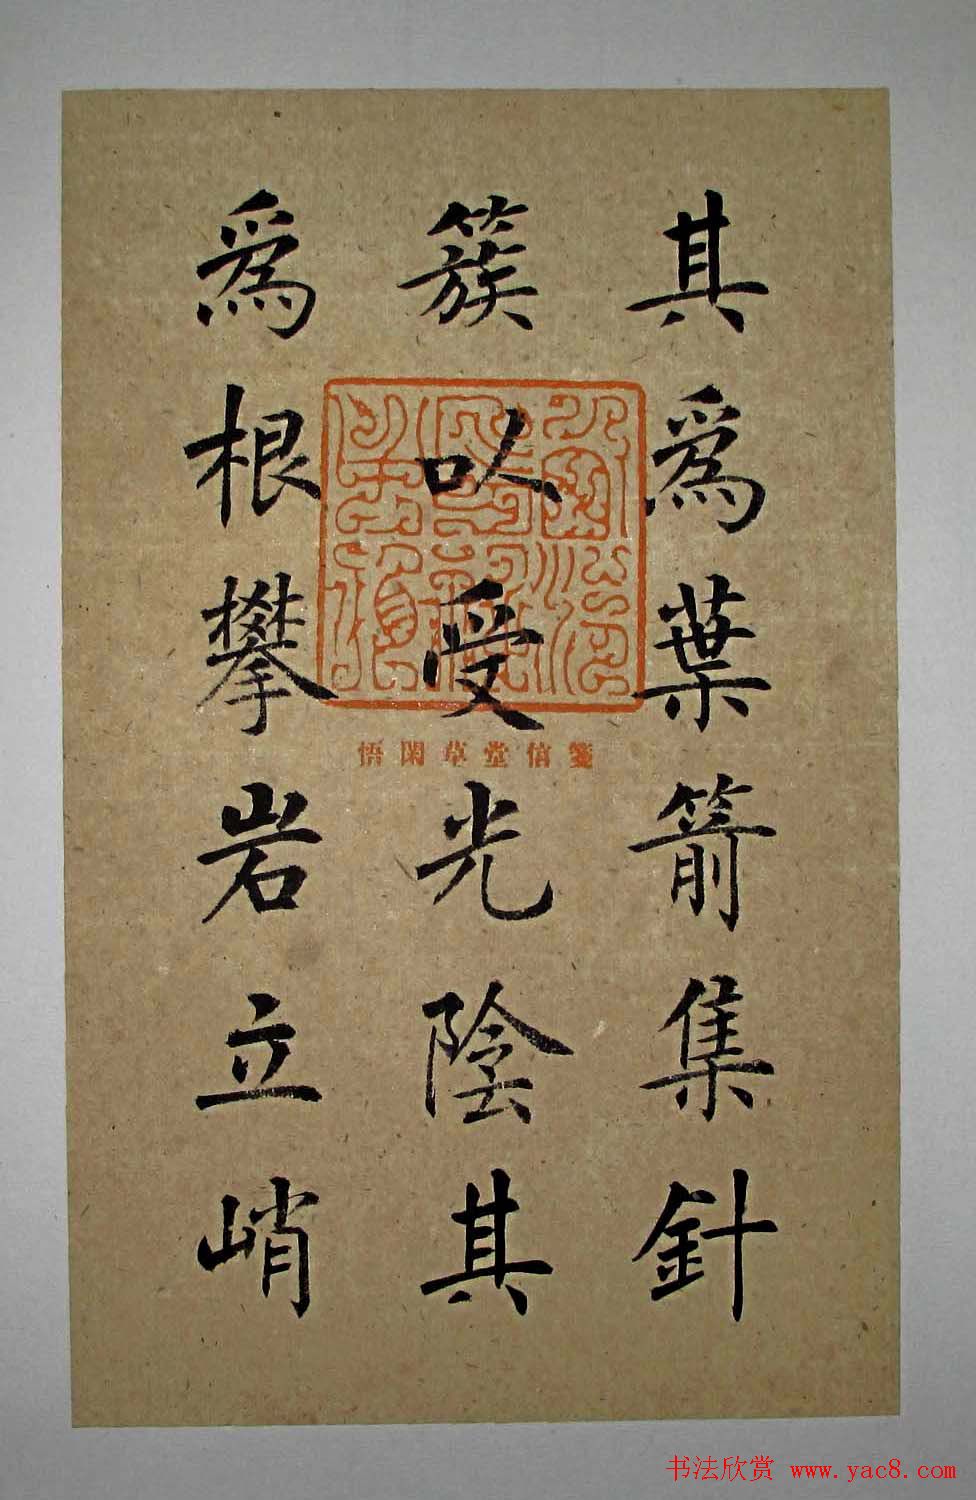 其爲葉箭集針
簇以受光陰其
爲根攀岩立峭
悟閑草堂信箋
书法欣赏 www.yac8.com